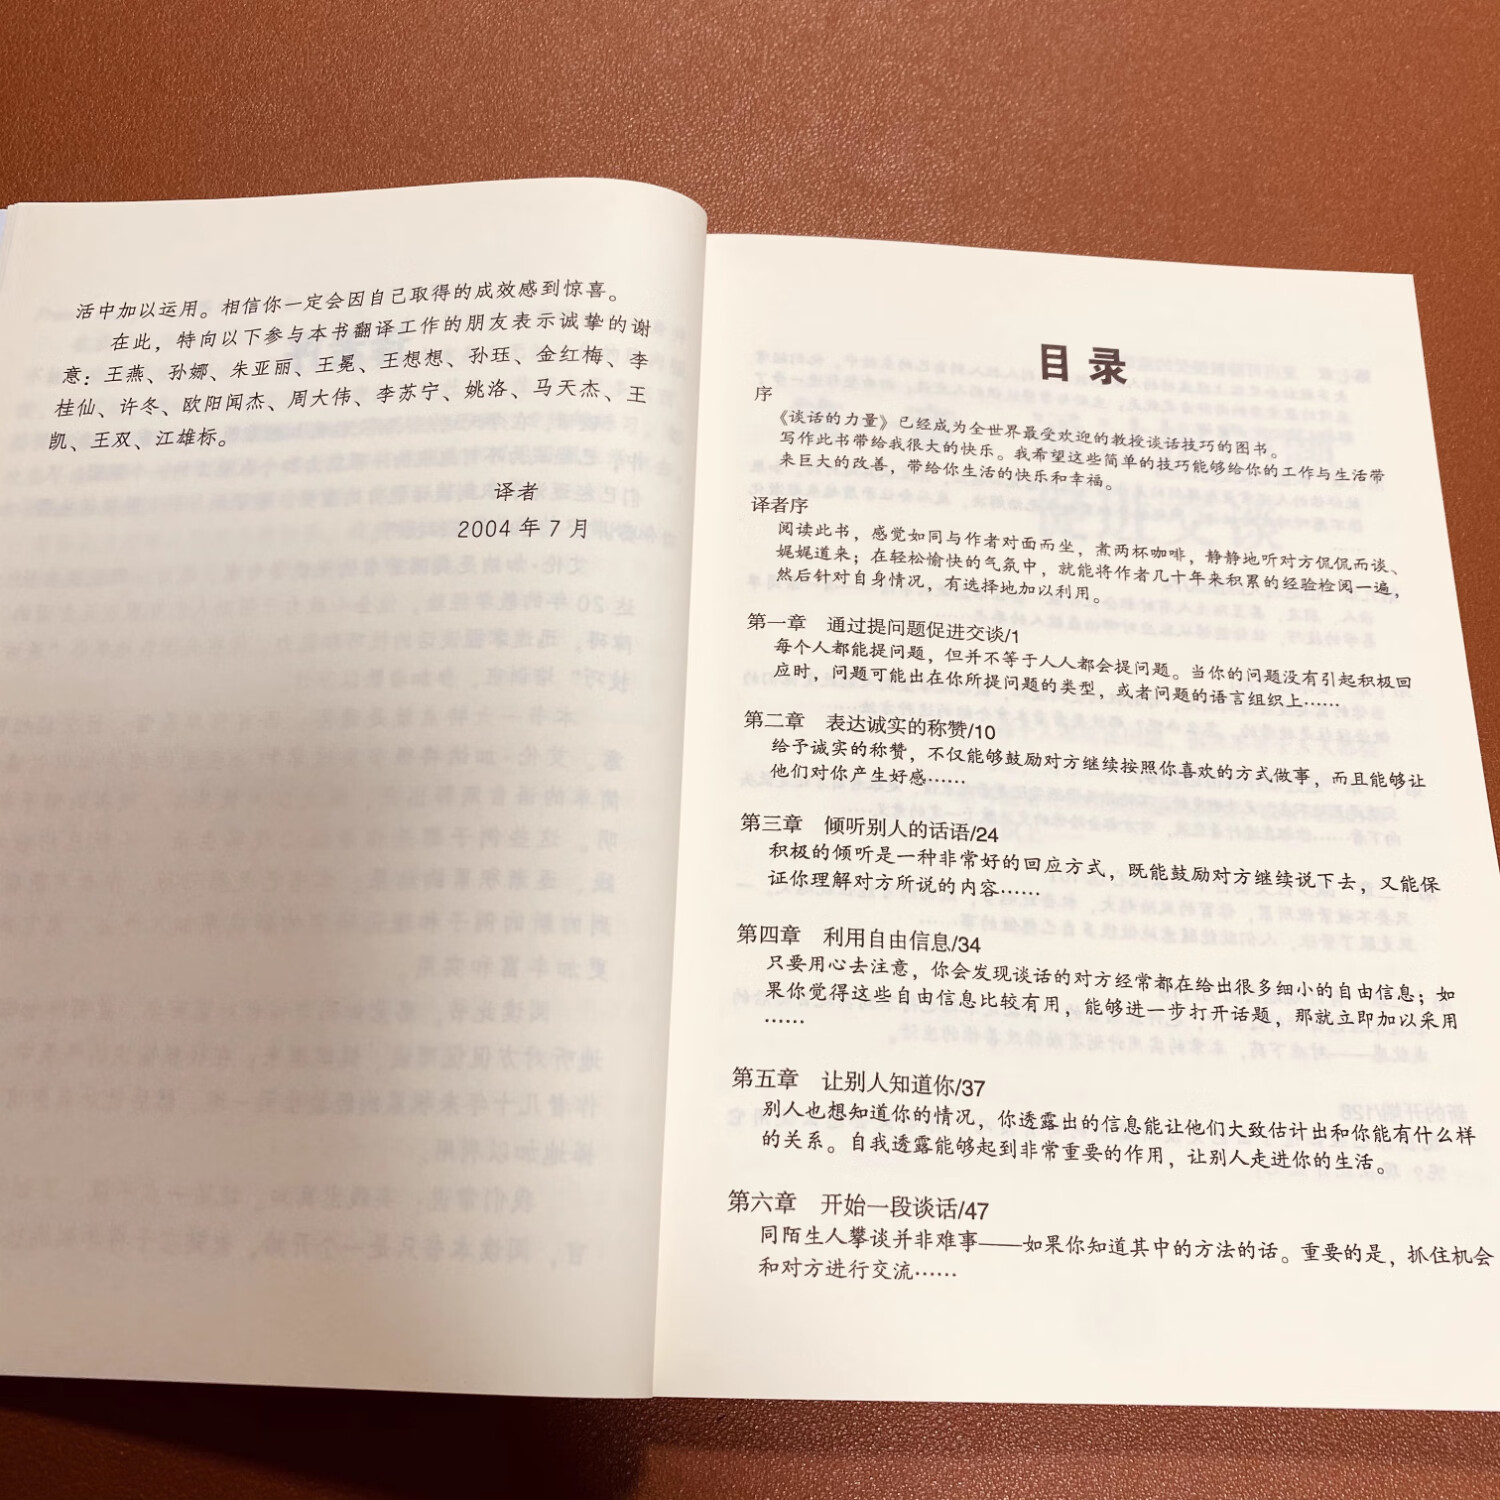 活中加以运用。相信你一定会因自己取得的成效感到惊喜。
在此，特向以下参与本书翻译工作的朋友表示诚挚的谢
意：王燕、孙娜、朱亚丽、王冕、王想想、孙珏、金红梅、李
桂仙、许冬、欧阳闻杰、周大伟、李苏宁、姚洛、马天杰、王
凯、王双、江雄标。
译者
2004 年 7 月
目录
序
《谈话的力量》已经成为全世界最受欢迎的教授谈话技巧的图书。
写作此书带给我很大的快乐。我希望这些简单的技巧能够给你的工作与生活带
来巨大的改善，带给你生活的快乐和幸福。
译者序
阅读此书，感觉如同与作者对面而坐，煮两杯咖啡，静静地听对方侃侃而谈、
娓娓道来；在轻松愉快的气氛中，就能将作者几十年来积累的经验检阅一遍，
然后针对自身情况，有选择地加以利用。
第一章 通过提问题促进交谈/1
每个人都能提问题，但并不等于人人都会提问题。当你的问题没有引起积极回
应时，问题可能出在你所提问题的类型，或者问题的语言组织上……
第二章 表达诚实的称赞/10
给予诚实的称赞，不仅能够鼓励对方继续按照你喜欢的方式做事，而且能够让
他们对你产生好感……
第三章 倾听别人的话语/24
积极的倾听是一种非常好的回应方式，既能鼓励对方继续说下去，又能保
证你理解对方所说的内容……
第四章 利用自由信息/34
只要用心去注意，你会发现谈话的对方经常都在给出很多细小的自由信息；如
果你觉得这些自由信息比较有用，能够进一步打开话题，那就立即加以采用
……
第五章 让别人知道你/37
别人也想知道你的情况，你透露出的信息能让他们大致估计出和你能有什么样
的关系。自我透露能够起到非常重要的作用，让别人走进你的生活。
第六章 开始一段谈话/47
同陌生人攀谈并非难事——如果你知道其中的方法的话。重要的是，抓住机会
和对方进行交流……